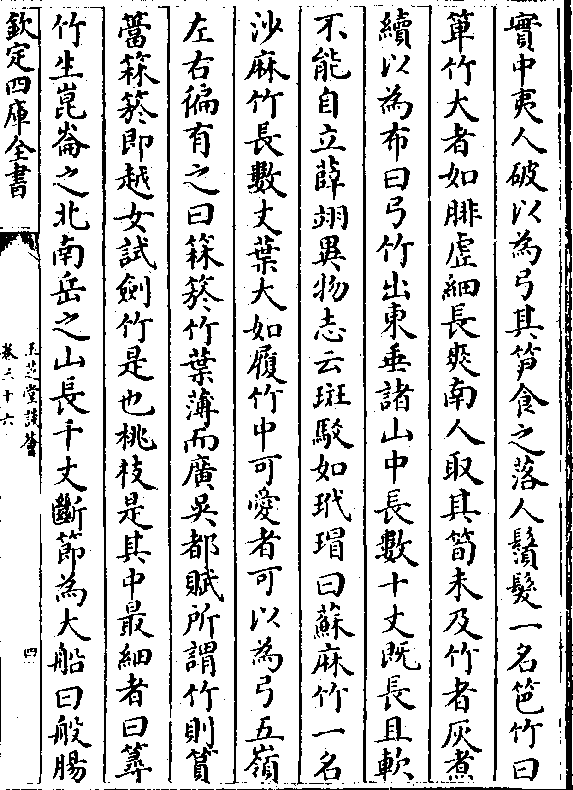 實中夷人破以為弓其筍食之落人鬚髮一名笆竹曰
箄竹大者如腓虛細長爽南人取其筍未及竹者灰煮
續以為布曰弓竹出東垂諸山中長數十丈既長且軟
不能自立薛翊異物志云斑駮如玳瑁曰蘇麻竹一名
沙麻竹長數丈葉大如履竹中可愛者可以為弓五嶺
左右徧有之曰箖箊竹葉薄而廣吳都賦所謂竹則篔
簹箖箊即越女試劍竹是也桃枝是其中最細者曰篿
竹生崑崙之北南岳之山長千丈斷節為大船曰般腸
欽定四庫全書
玉芝堂談薈
卷三十六
四